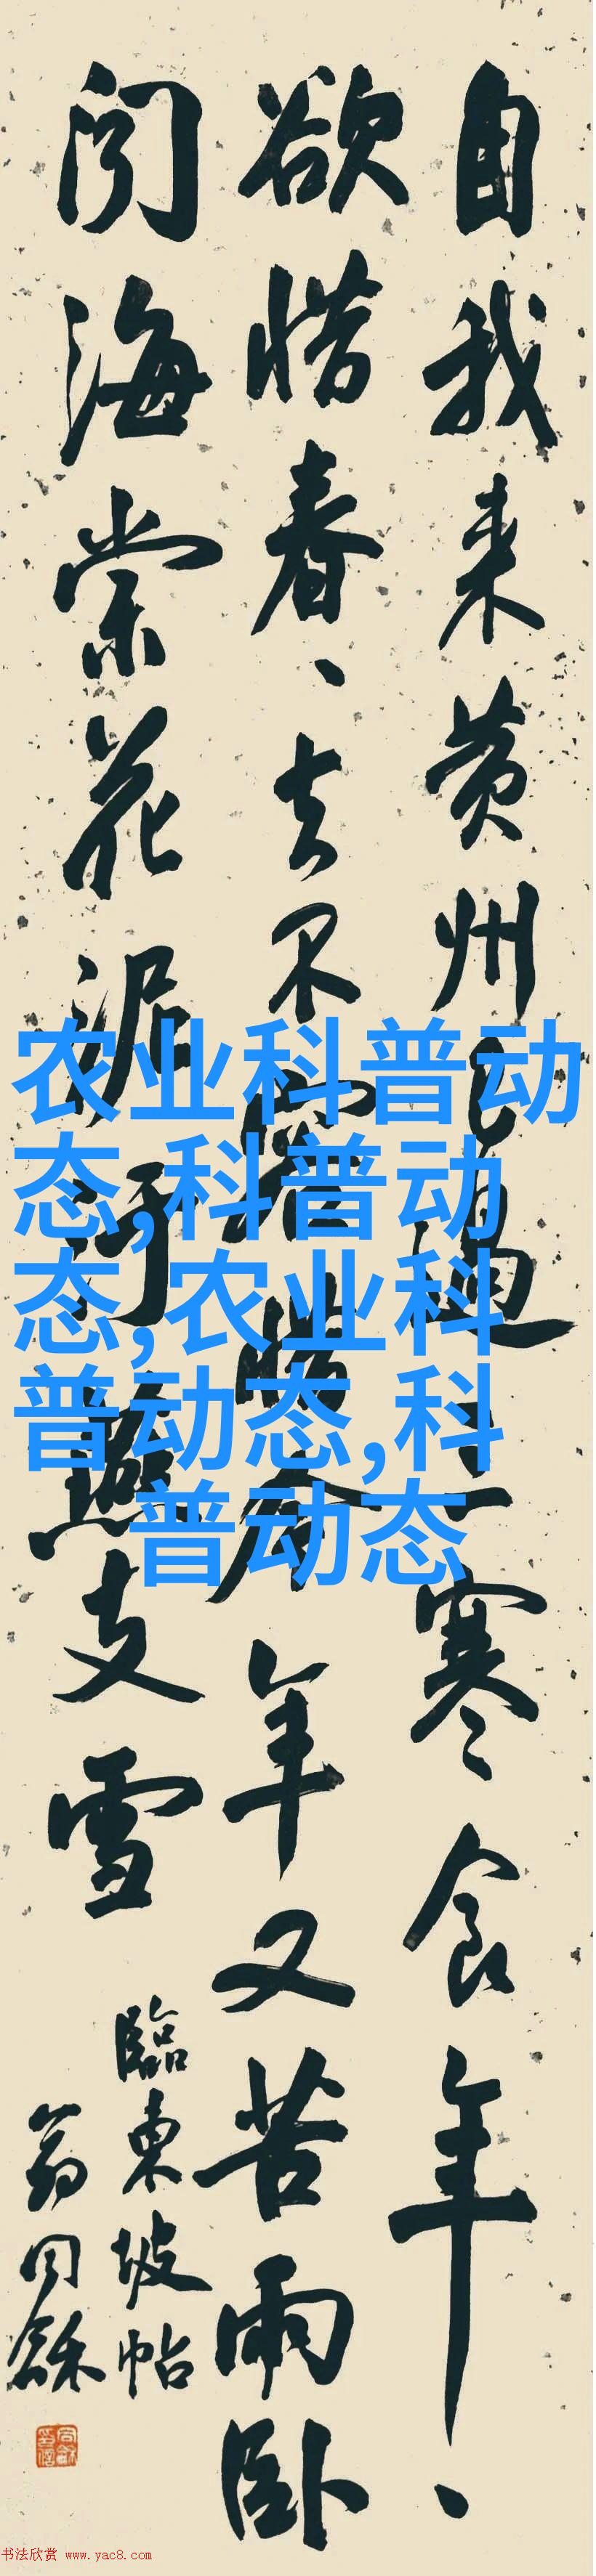 自我来黄州已過三寒食年、
欲惜春、去不容惜今年又苦雨卧
闻海棠花泥汙燕支雪
臨東坡帖
翁同龢
农业科普动
态,科普动
态,农业科
普动态,科
普动态
书法欣赏 www.yac8.com